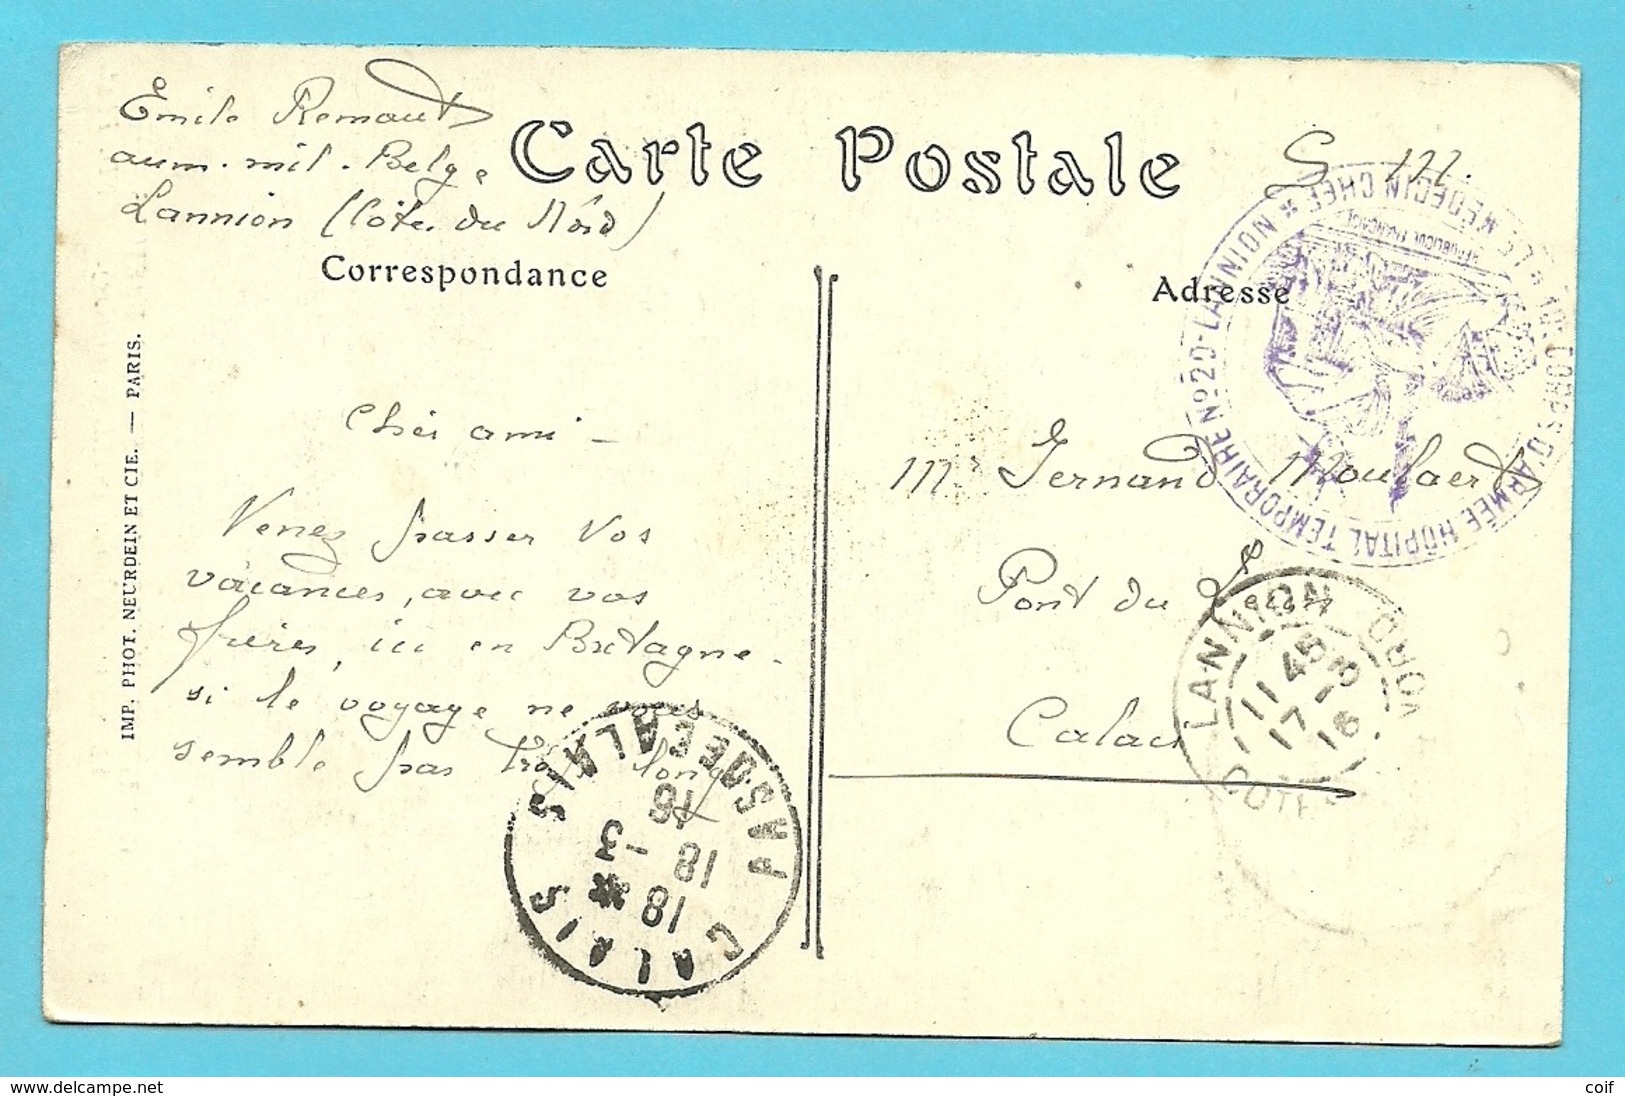 Émile Remaut
aum. mil. Belge
Lannion (Côte du Nord)
Carte Postale
S M.
Correspondance
Adresse
IMP. PHOT. NEURDEIN ET CIE. — PARIS.
Cher ami —
Venez passer vos
vacances, avec vos
frères, ici en Bretagne.
si le voyage ne vous
semble pas trop long.
Mr Fernand Moulaert
Pont du
Calais
* LE MÉDECIN CHEF * 10e CORPS D'ARMÉE HÔPITAL TEMPORAIRE No 20 - LANNION *
RÉPUBLIQUE FRANÇAISE
LANNION
COTES NORD
11 45
17 - 3
16
CALAIS
PAS DE CALAIS
18 *
18 - 3
16
www.delcampe.net
coif